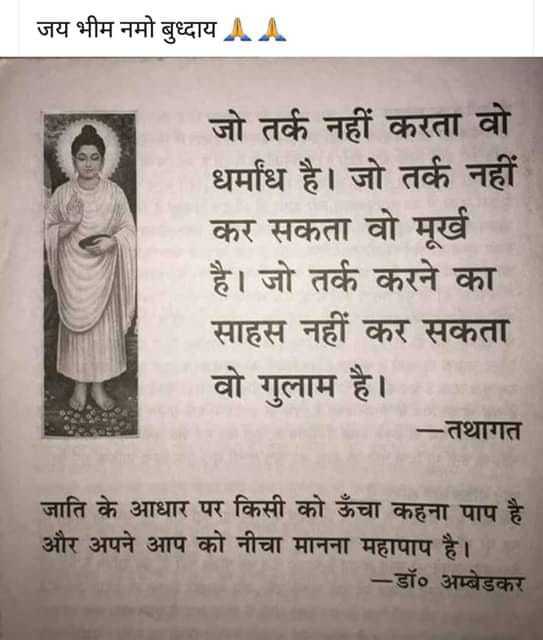 जय भीम नमो बुध्दाय 🙏 🙏
जो तर्क नहीं करता वो
धर्मांध है। जो तर्क नहीं
कर सकता वो मूर्ख
है। जो तर्क करने का
साहस नहीं कर सकता
वो गुलाम है।
—तथागत
जाति के आधार पर किसी को ऊँचा कहना पाप है
और अपने आप को नीचा मानना महापाप है।
—डॉ० अम्बेडकर